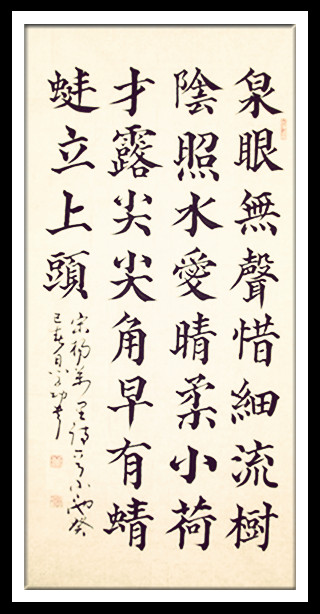 泉眼無聲惜細流樹
陰照水愛晴柔小荷
才露尖尖角早有蜻
蜓立上頭
宋楊萬里詩一首小池癸
巳春月